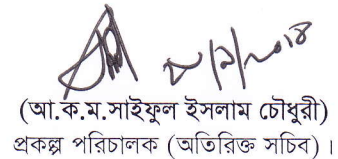 (আ.ক.ম.সাইফুল ইসলাম চৌধুরী)
প্রকল্প পরিচালক (অতিরিক্ত সচিব) ।